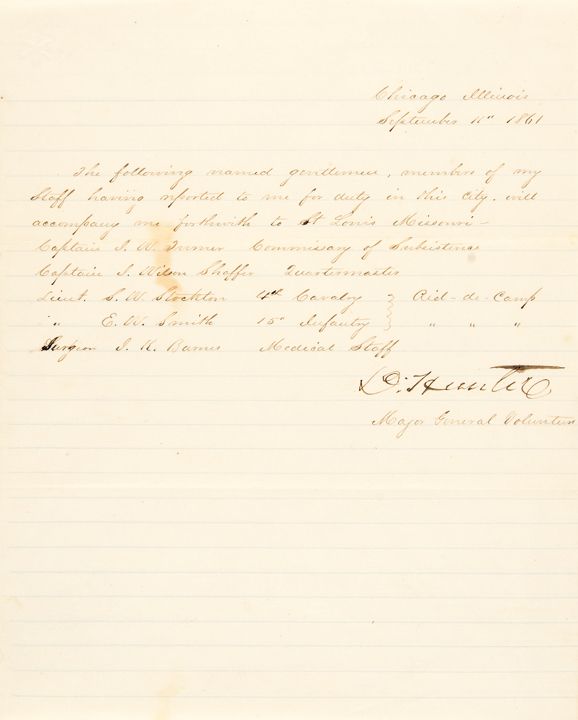 Chicago Illinois
September 11th 1861
The following named gentlemen, members of my
Staff having reported to me for duty in this city, will
accompany me forthwith to St Louis Missouri –
Captain J. W. Turner Commissary of Subsistence
Captain J. Wilson Shaffer Quartermaster
Lieut. S. W. Stockton 4th Cavalry } Aid-de-Camp
" " E. W. Smith 15th Infantry } " " "
Surgeon J. K. Barnes Medical Staff
D. Hunter
Major General Volunteers